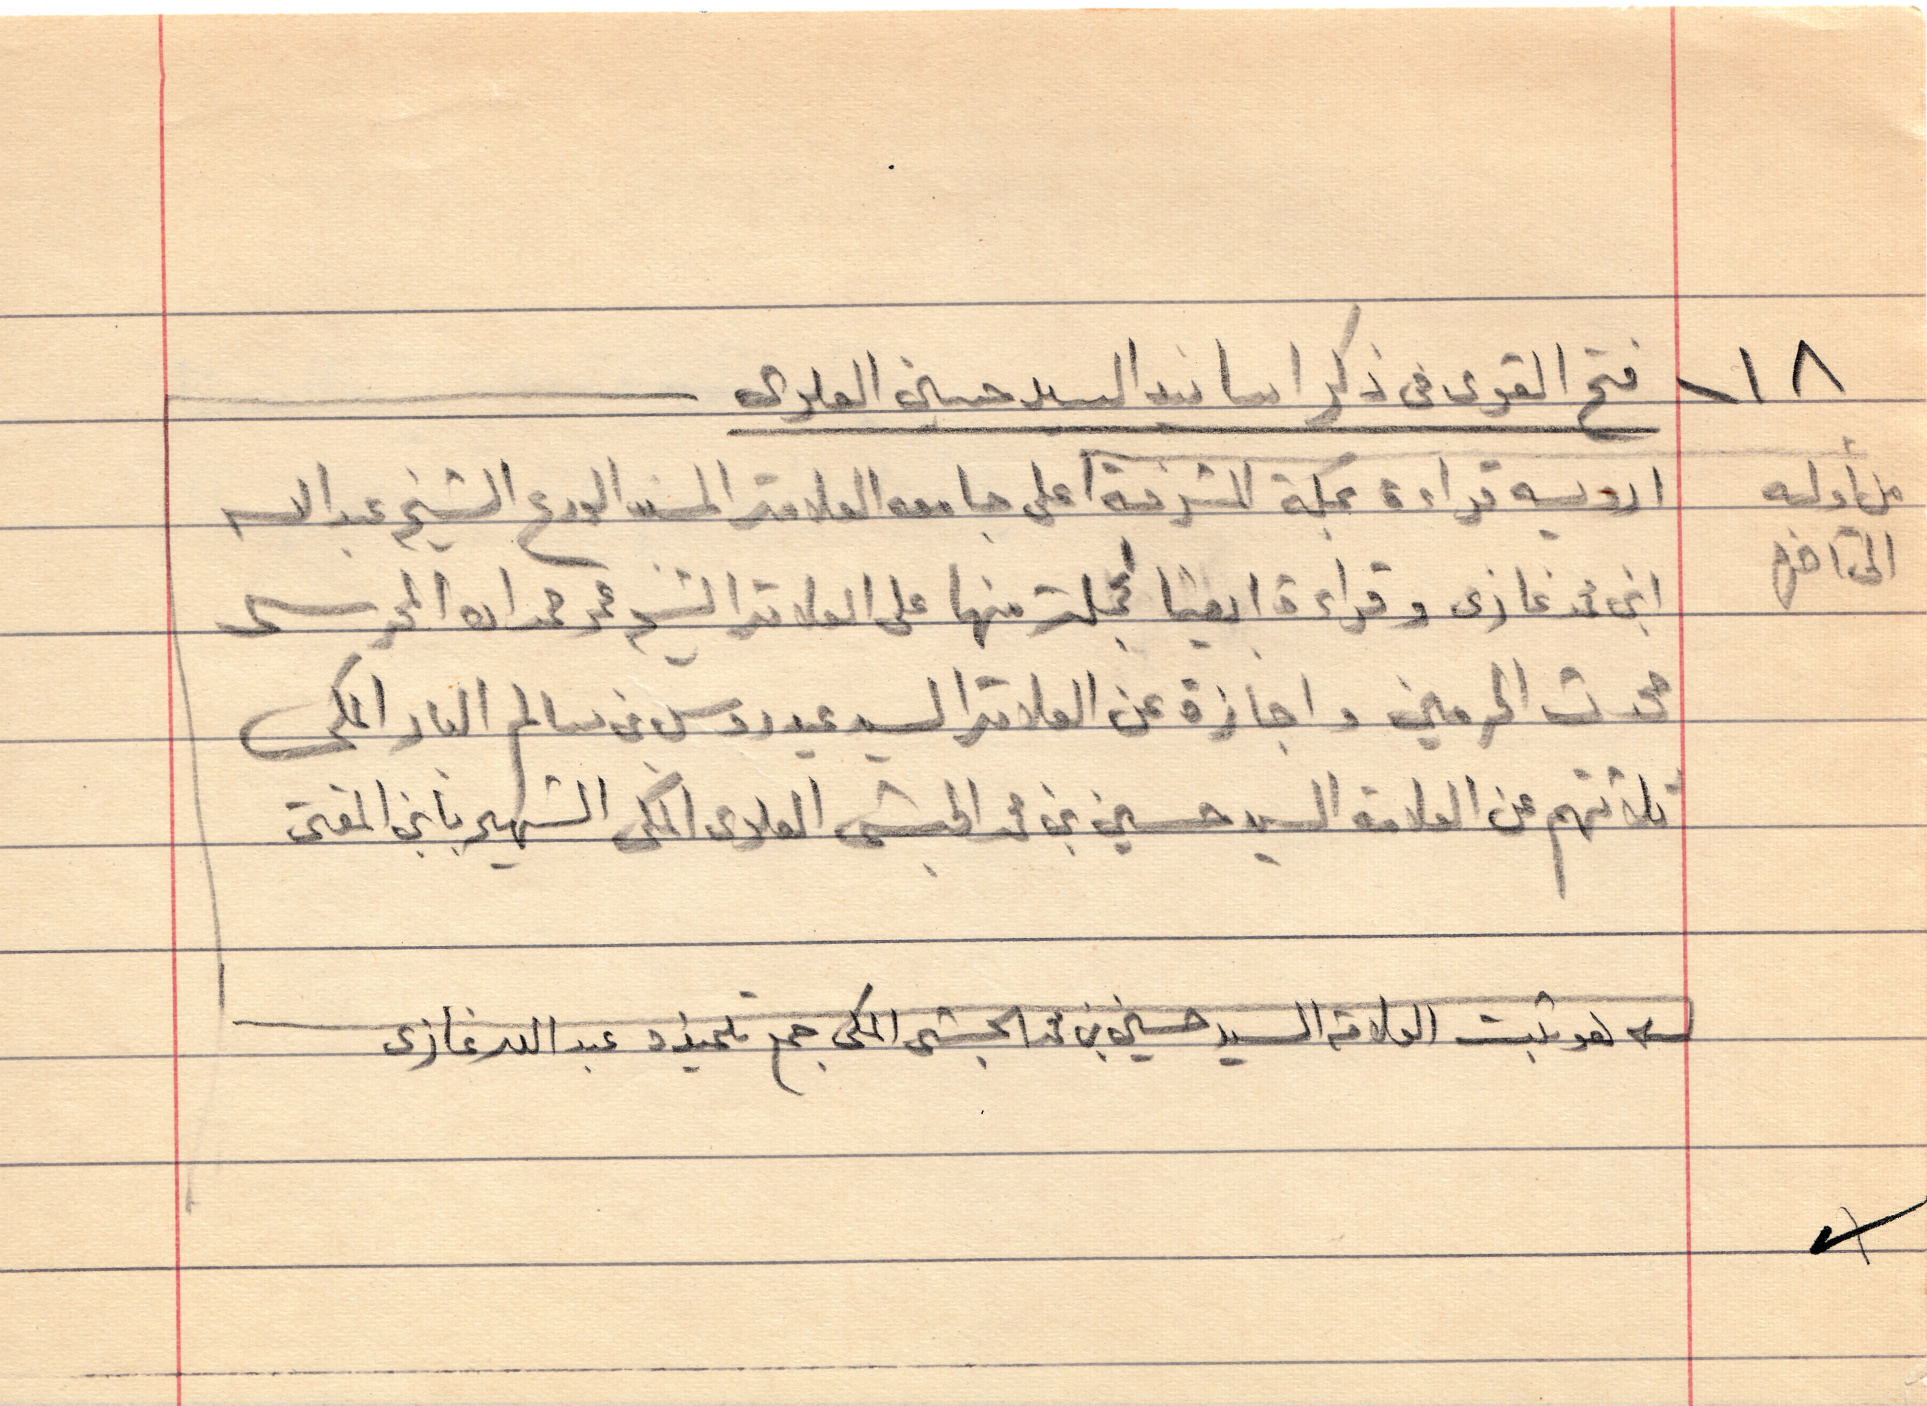 ١٨ـ فتح القوى فى ذكر اسانيد السيد حسين العلوى
ارويه قراءة بمكة المشرفة على جامعه العلامة المسند الورع الشيخ عبد الله
من أوله
الى آخره
ابن محمد غازى وقراءة ايضا لجملة منها على العلامة الشيخ عمر حمدان المحرسى
محدث الحرمين واجازة عن العلامة السيد عيدروس بن سالم البار المكى
ثلاثتهم عن العلامة السيد حسين بن محمد الحبشى العلوى المكى الشهير بابن المفتى
هو ثبت العلامة السيد حسين بن محمد الحبشى المكى جمع تلميذه عبد الله غازى